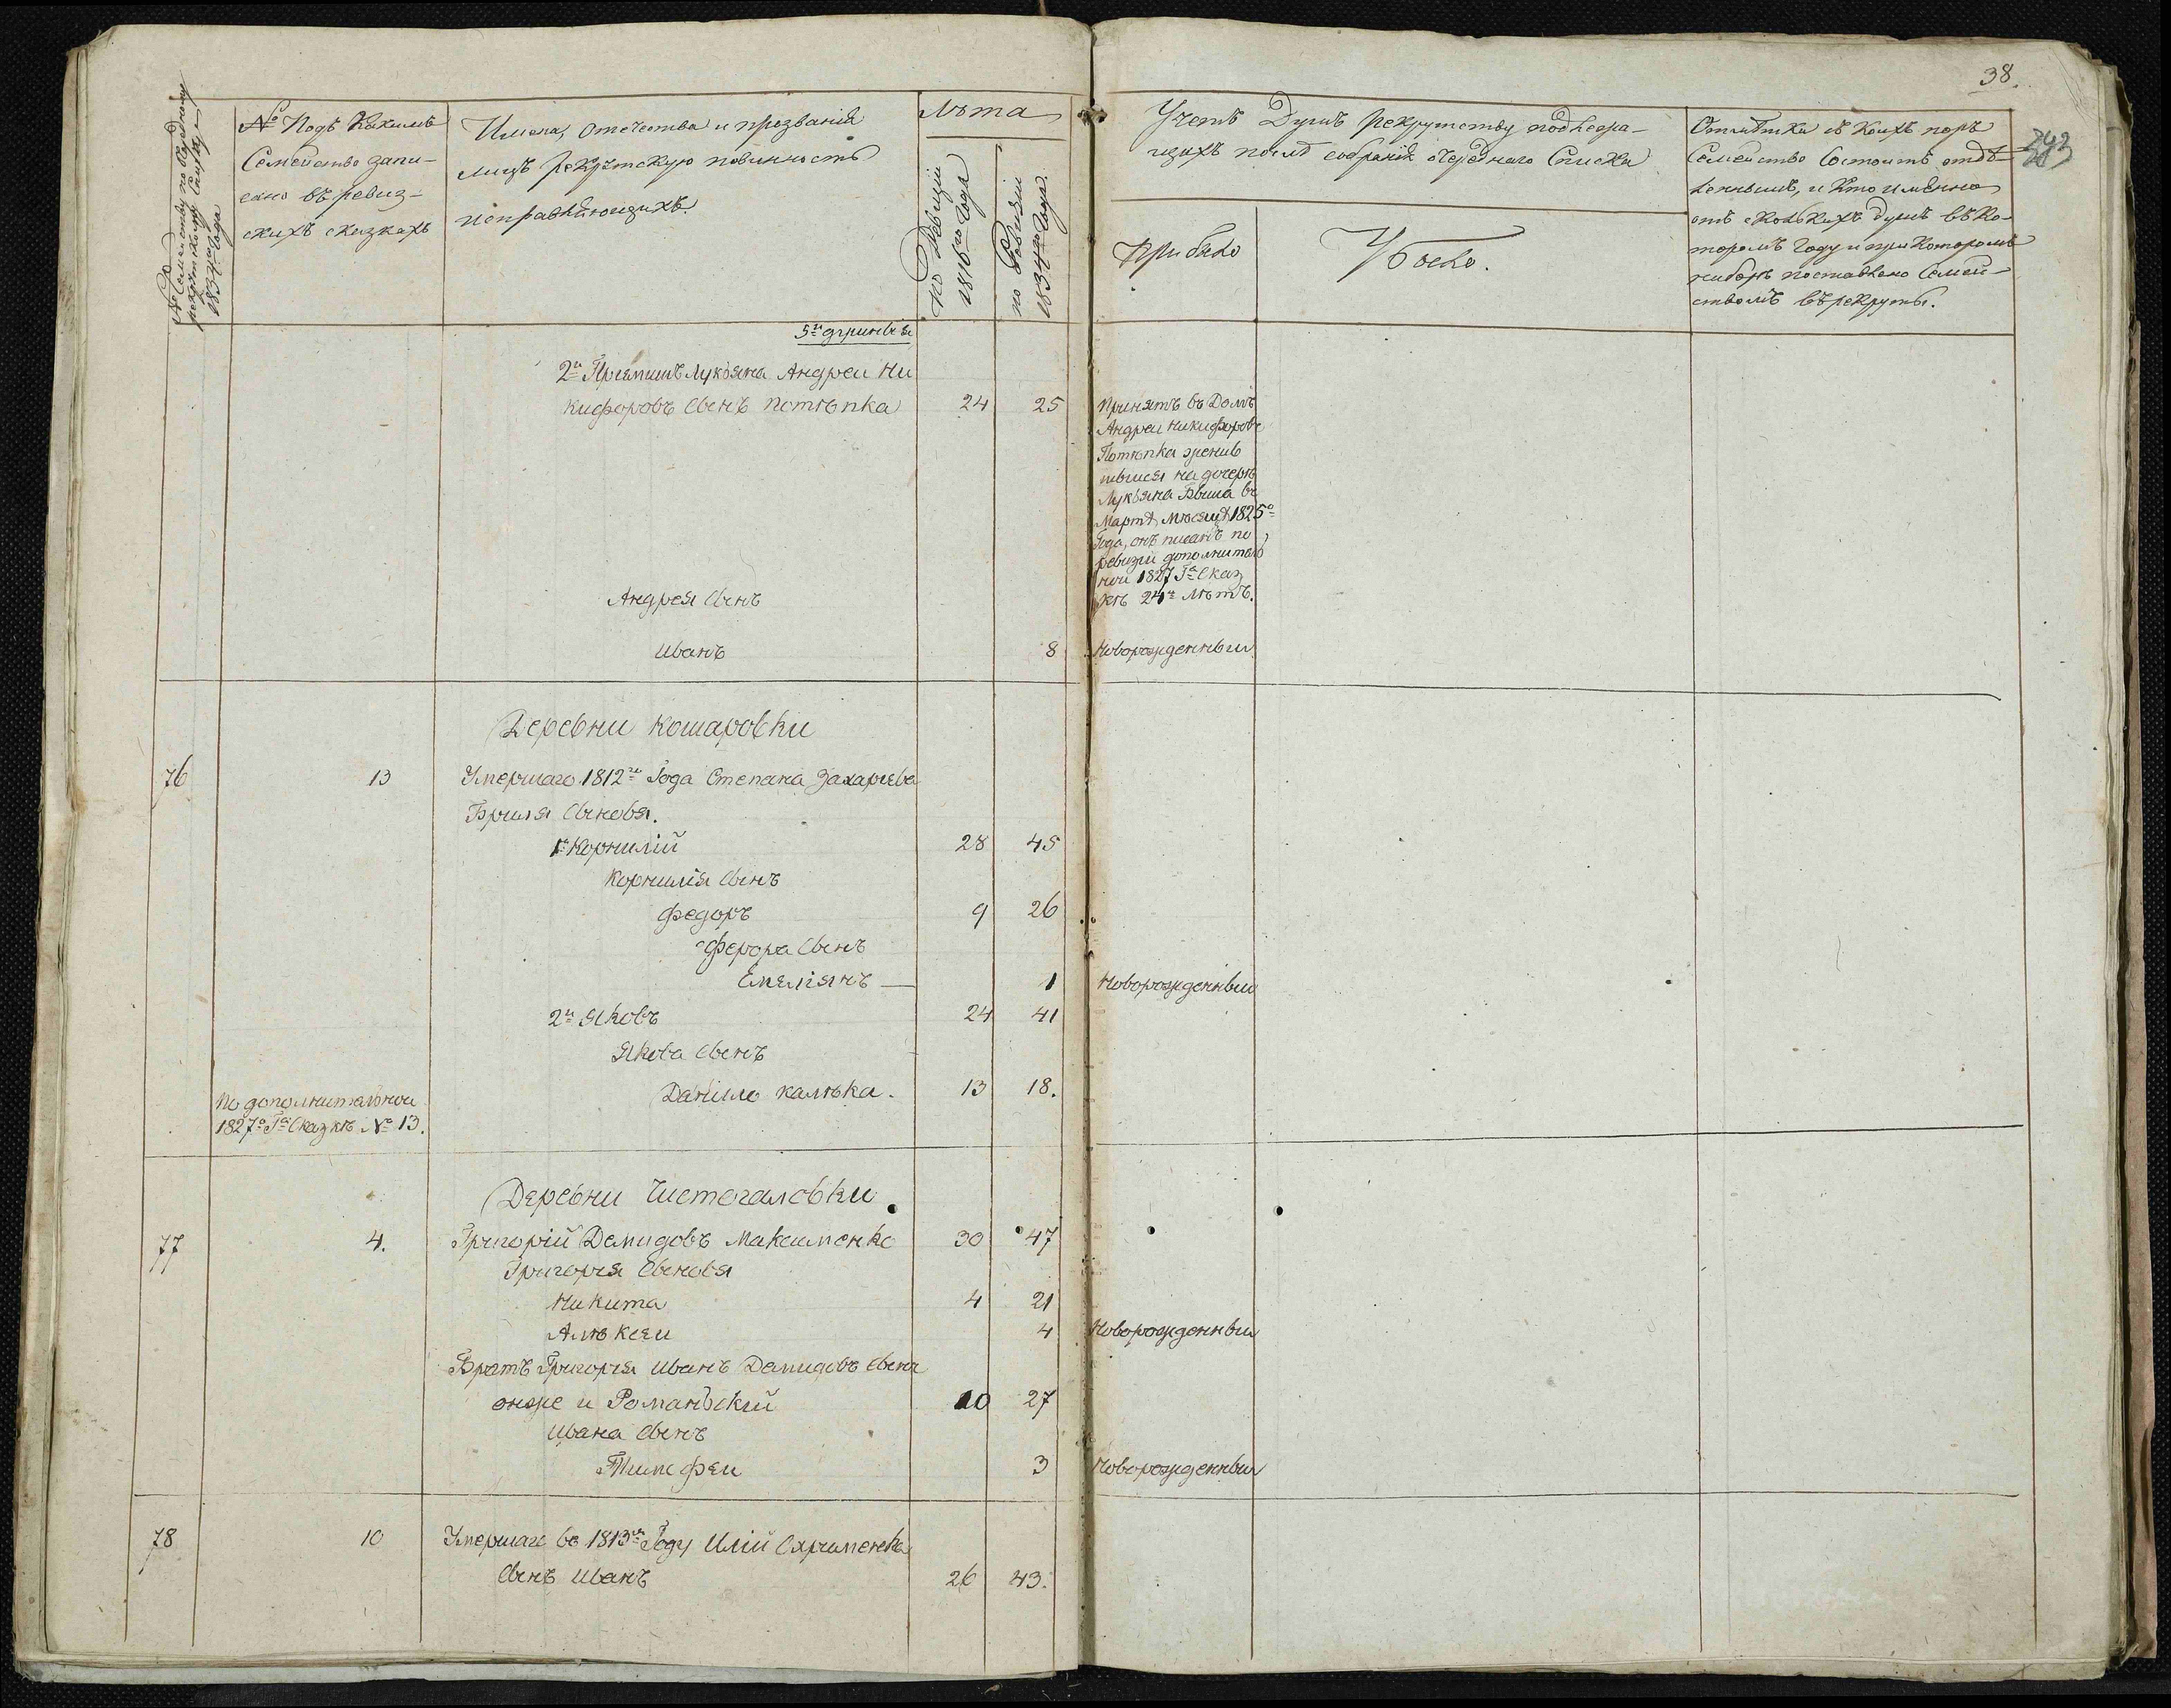 38.
№ Семейству по очередному
рекрутскому списку
1834го года
№ Подъ какимъ
Семейство запи-
сано въ ревиз-
скихъ сказкахъ
Имена, отечества и прозвания
лицъ рекрутскую повинность
исправляющихъ.
Лѣта
по Ревизіи
1816го года
по Ревизіи
1834го года.
Учетъ Душъ рекрутству подлежа-
щихъ послѣ собранія очереднаго списка
Прибыло
Убыло.
Отмѣтки съ коихъ поръ
Семейство состоитъ отдѣ-
леннымъ, и кто именно
отъ сколькихъ душъ въ ко-
торомъ году и при которомъ
наборѣ поставлено Семей-
ствомъ въ рекруты.
2й Пріемишъ Лукьяна Андреи Ни
кифоровъ сынъ Потѣпка 24 25
Принятъ въ Домъ
Андреи Никифоровъ
Потѣпка женив
шыся на дочерѣ
Лукьяна Быша въ
Мартѣ мѣсяцѣ 1825о
Года, онъ писанъ по
ревизіи дополнитель
ной 1827 Га Сказ
кѣ 24х Лѣтъ.
Андрея сынъ
Иванъ 8 Новорожденный
Деревни Кошаровки
76 13 Умершаго 1812го Года Степана Захаріева
Бриля сыновя.
1й Корнилій 28 45
Корнилія сынъ
Федоръ 9 26
Ферора сынъ
Емеліянъ — 1 Новорожденный
2й Яковъ 24 41
Якова сынъ
Данило калѣка. 13 18.
По дополнительной
1827о Га Сказкѣ № 13.
Деревни Чистогаловки
77 4. Григорій Демидовъ Максименко 30 47
Григорія сыновя
Никита 4 21
Алѣксеи 4 Новорожденный
Братъ Григорія Иванъ Демидовъ сынъ
онже и Романьский 10 27
Ивана сынъ
Тимофеи 3 Новорожденный
78 10 Умершаго въ 1813м Году Иліи Охрименка
сынъ Иванъ 26 43.